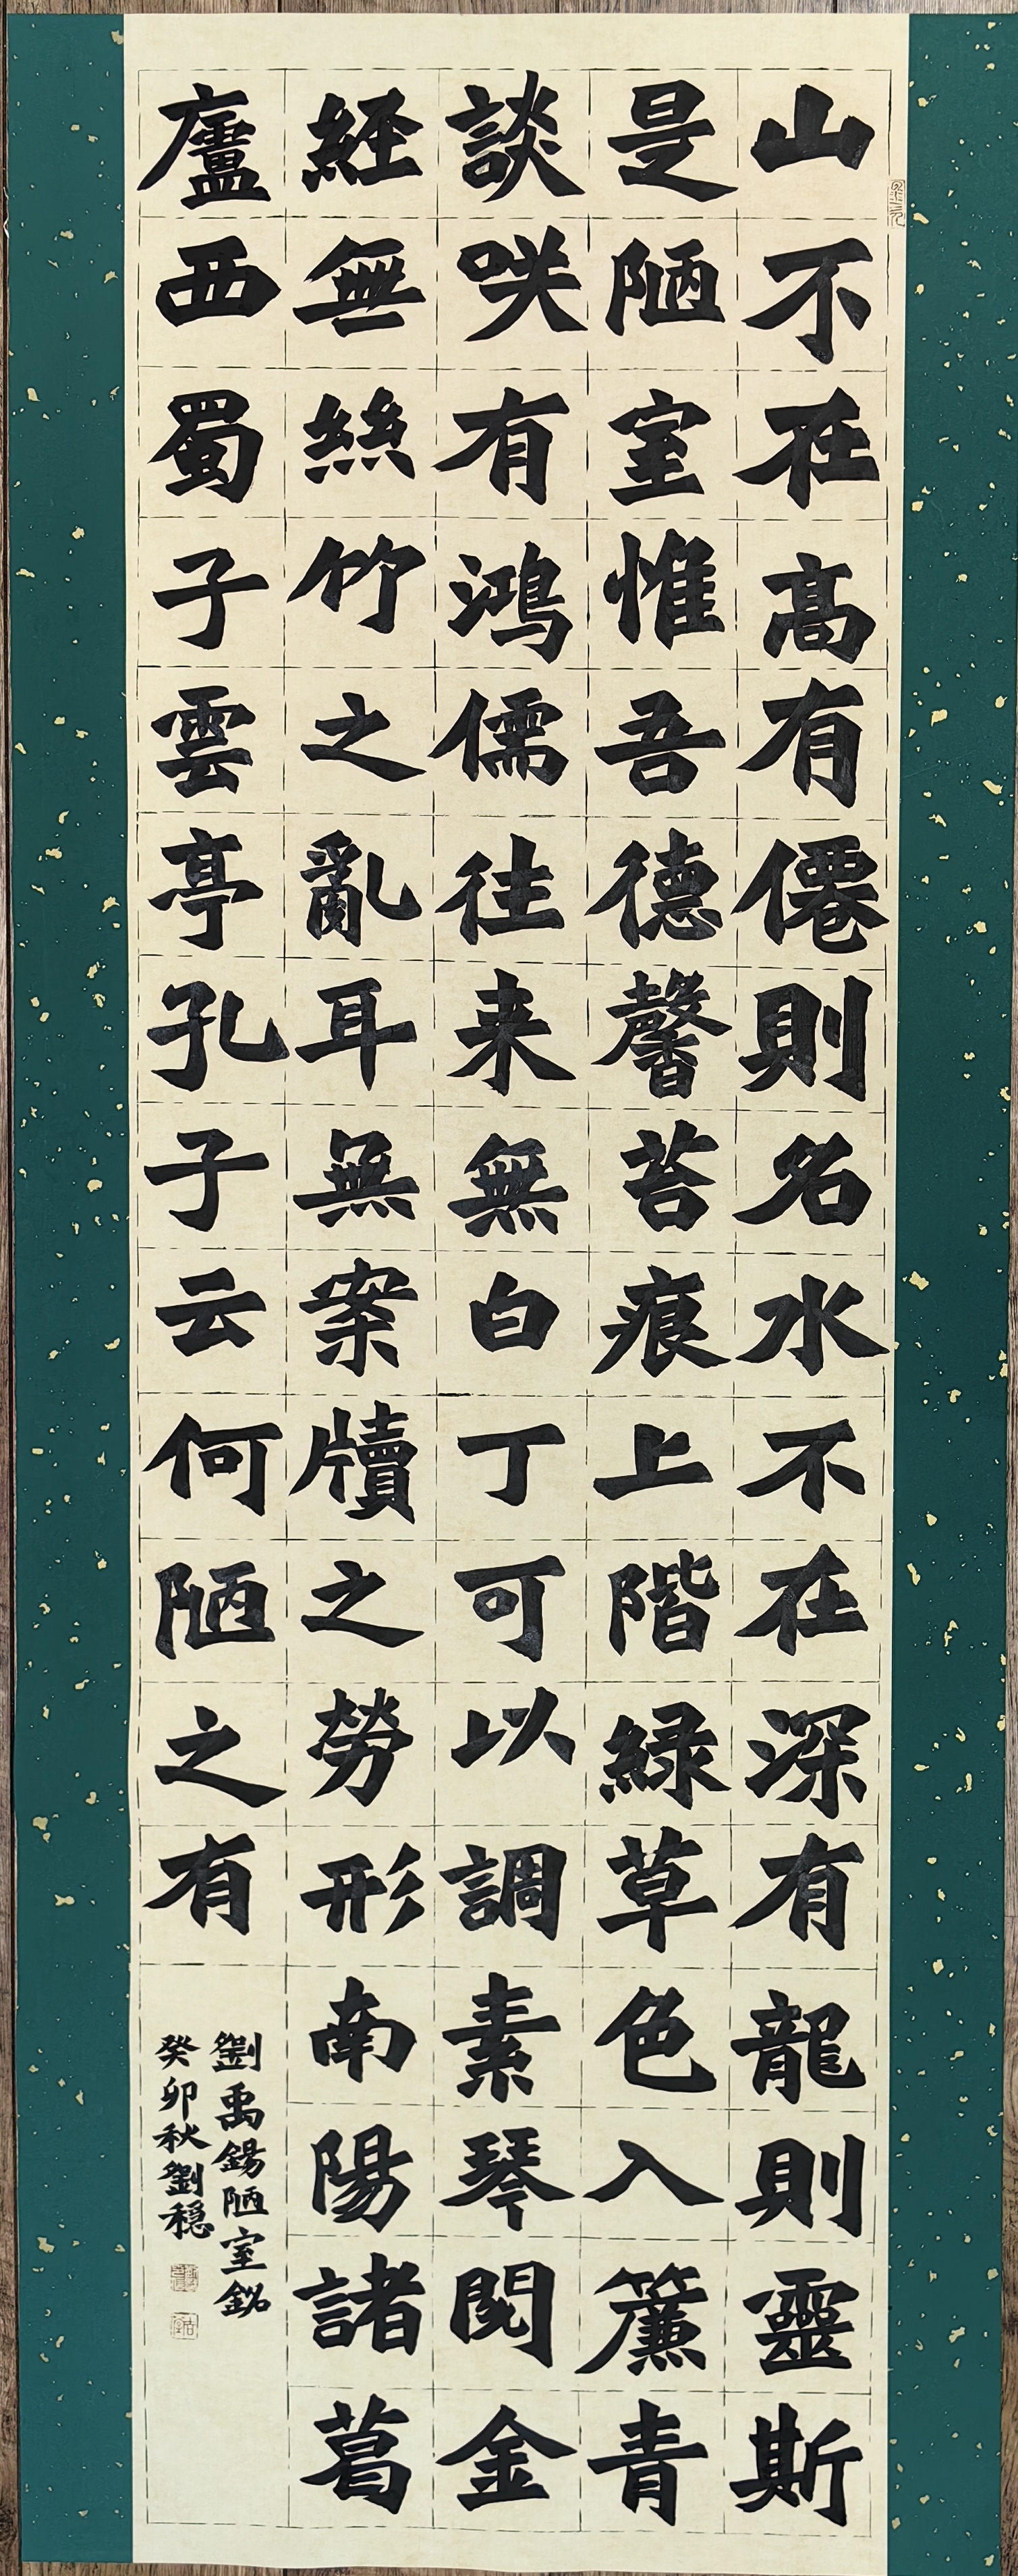 山不在高有僊則名水不在深有龍則靈斯
是陋室惟吾德馨苔痕上階緑草色入簾青
談咲有鴻儒往来無白丁可以調素琴閱金
経無絲竹之亂耳無案牘之勞形南陽諸葛
廬西蜀子雲亭孔子云何陋之有
劉禹錫陋室銘
癸卯秋劉穩